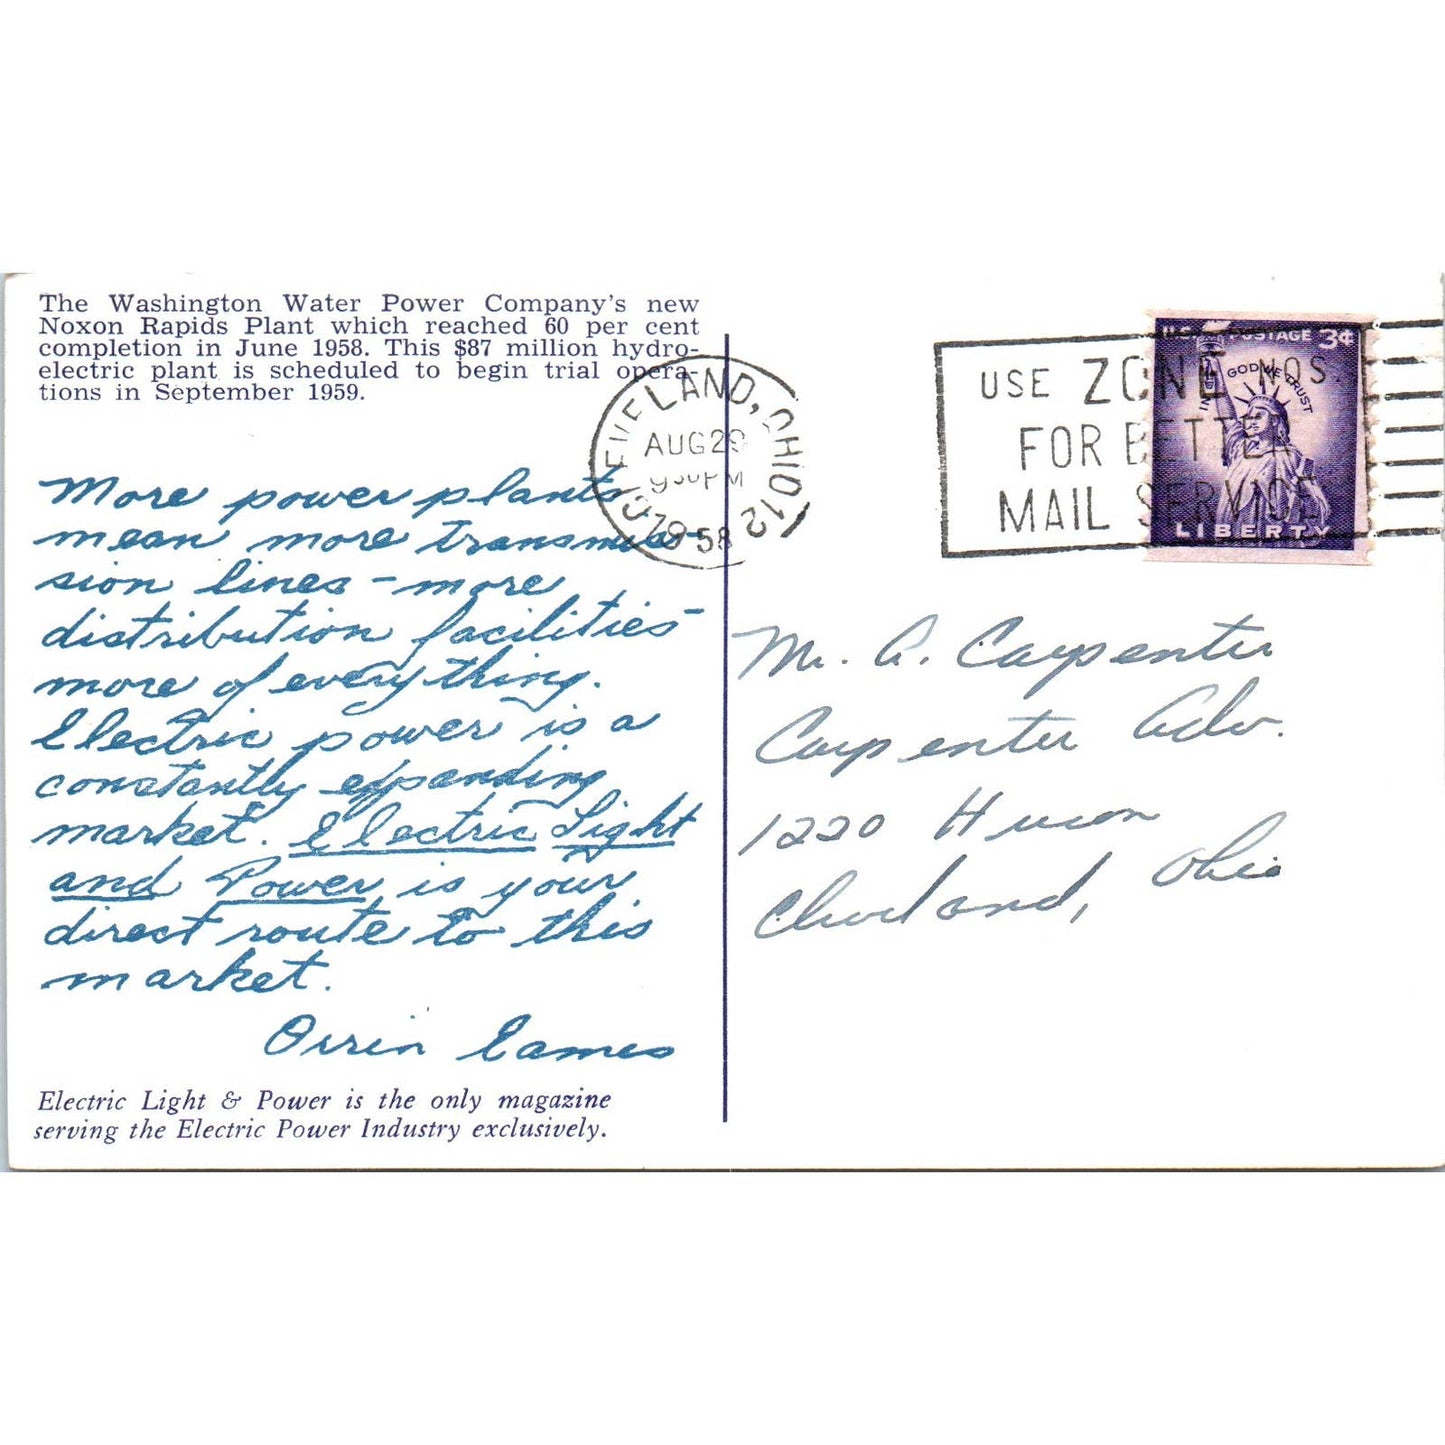 The Washington Water Power Company's new
Noxon Rapids Plant which reached 60 per cent
completion in June 1958. This $87 million hydro-
electric plant is scheduled to begin trial opera-
tions in September 1959.
More power plants
mean more transmis-
sion lines - more
distribution facilities -
more of everything.
Electric power is a
constantly expanding
market. Electric Light
and Power is your
direct route to this
market.
Orrin Eames
Electric Light & Power is the only magazine
serving the Electric Power Industry exclusively.
CLEVELAND, OHIO 12
AUG 29
PM
1958
USE ZONE NOS.
FOR BETTER
MAIL SERVICE
U.S. POSTAGE 3¢
IN GOD WE TRUST
LIBERTY
Mr. A. Carpenter
Carpenter Adv.
1220 Huron
Cleveland, Ohio